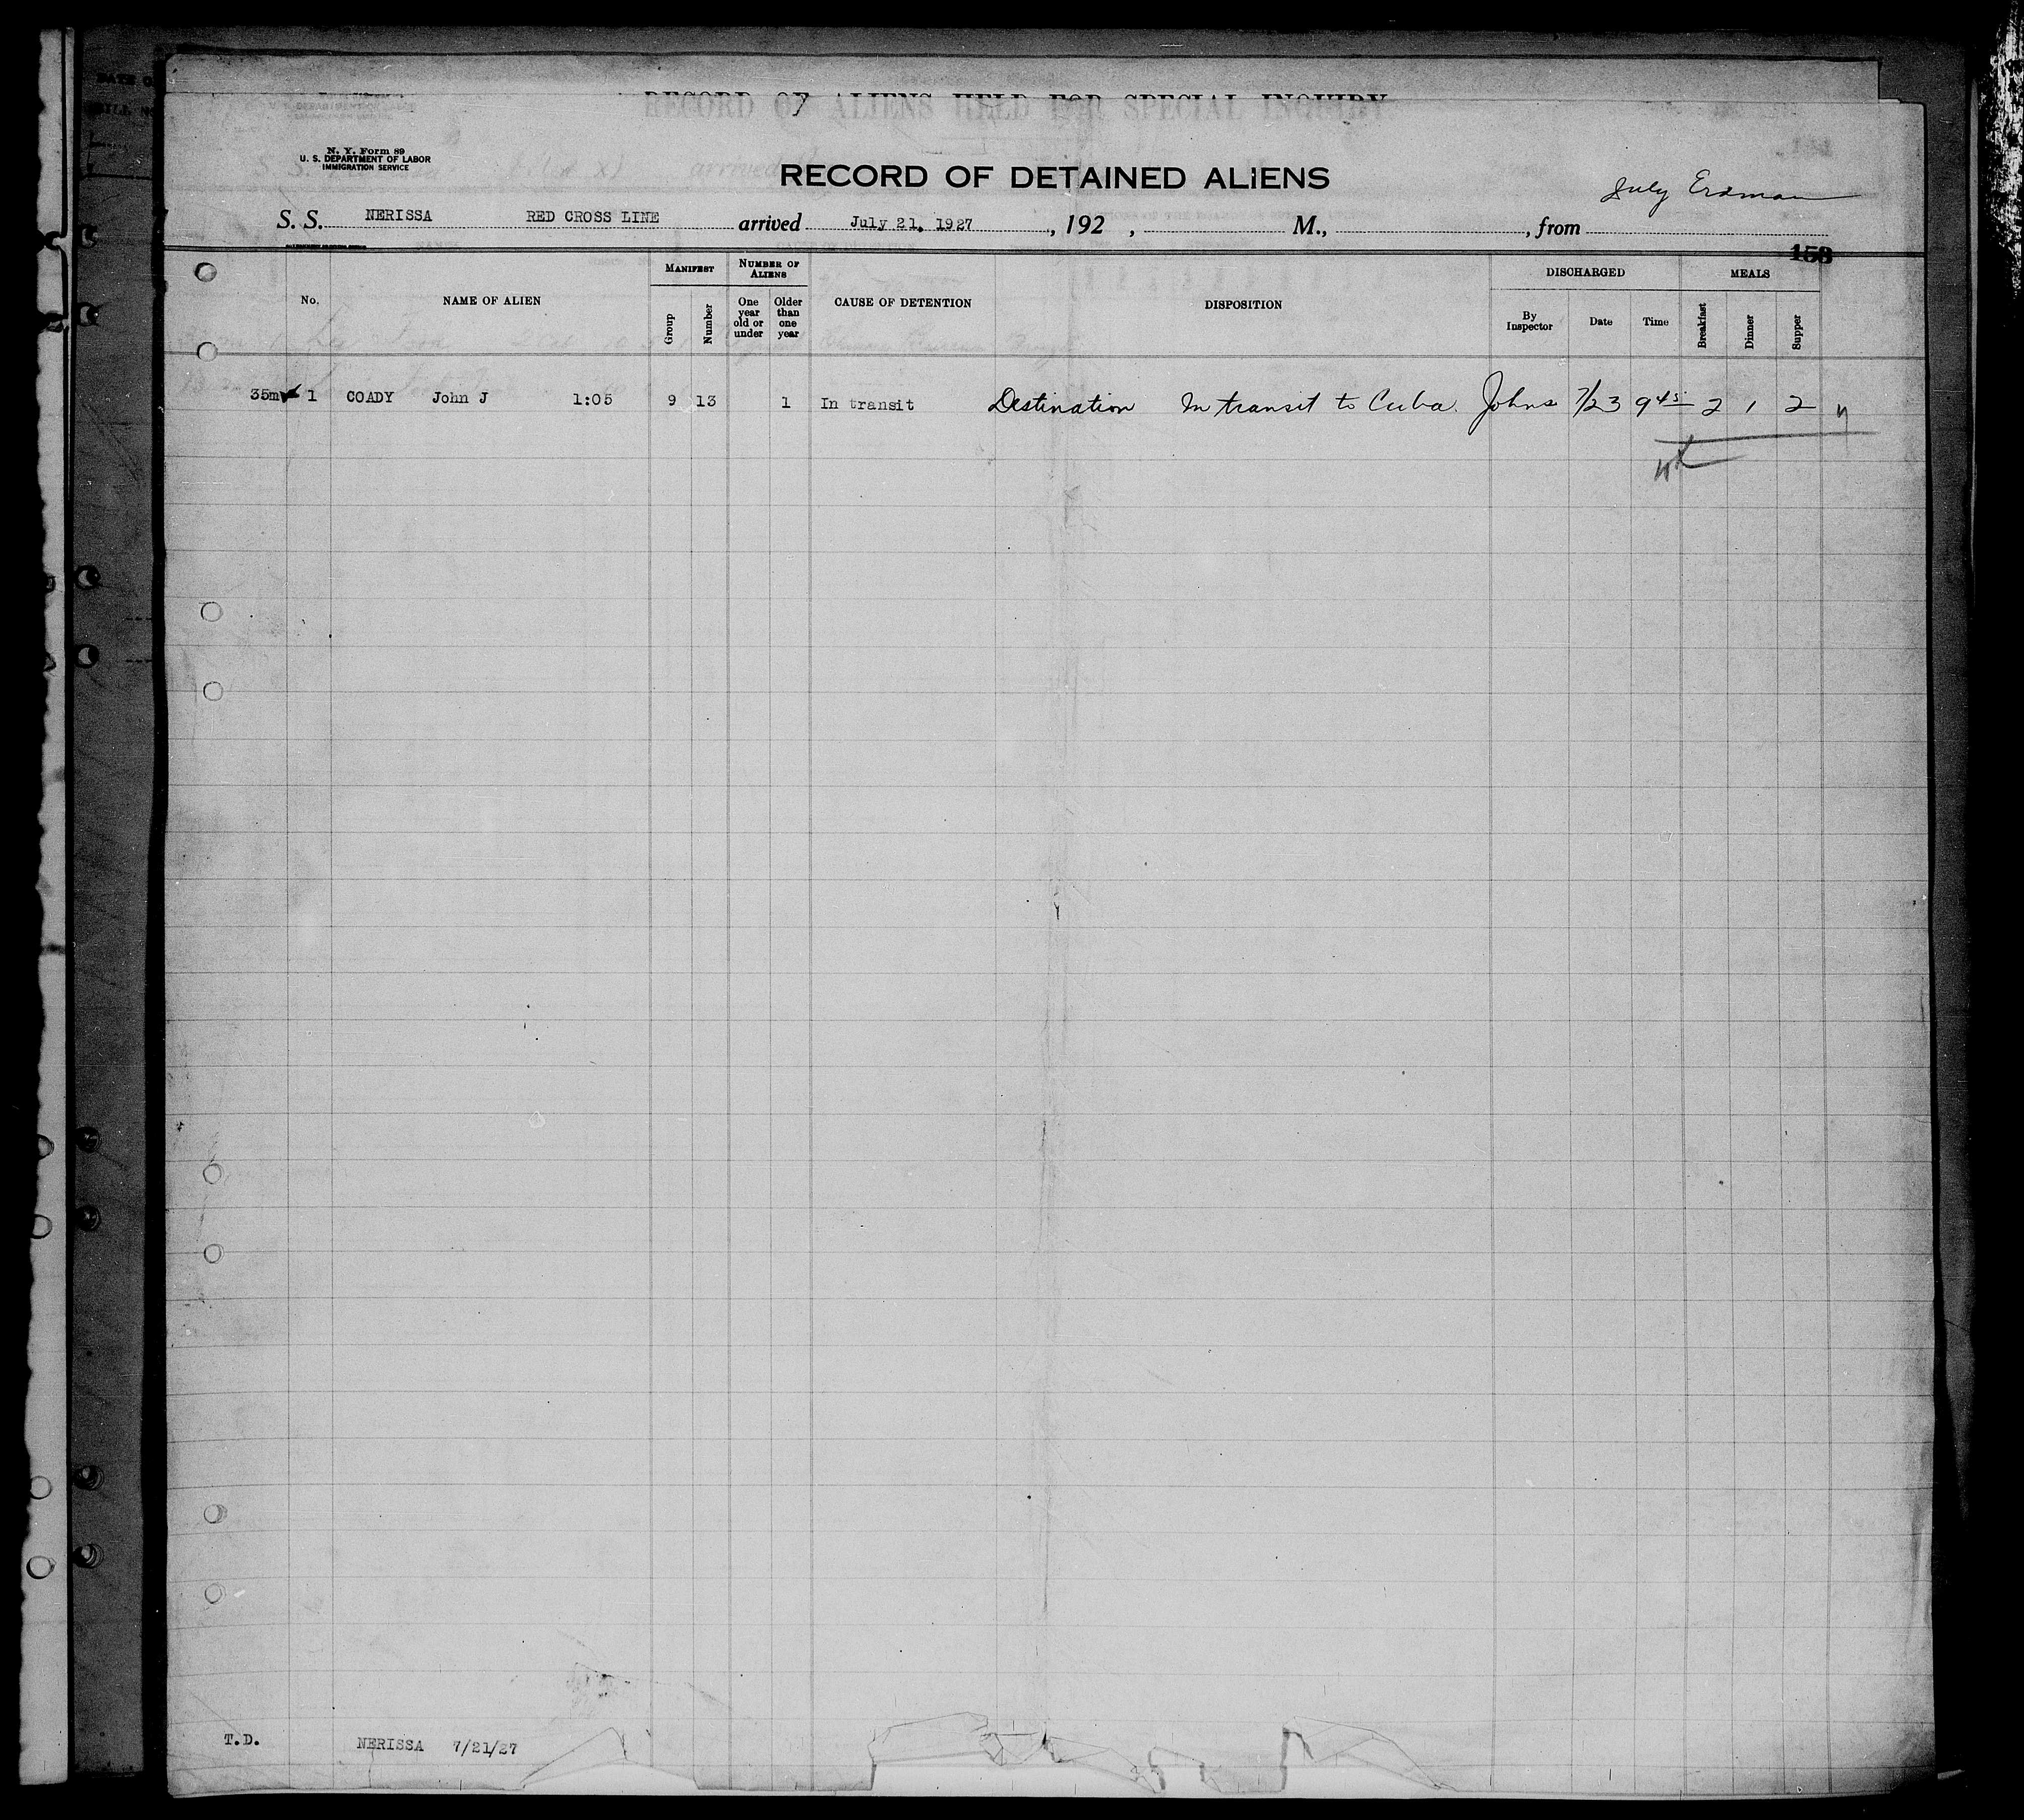 RECORD OF ALIENS HELD FOR SPECIAL INQUIRY
N. Y. Form 89
U. S. DEPARTMENT OF LABOR
IMMIGRATION SERVICE
RECORD OF DETAINED ALIENS
July Erdman
S. S. NERISSA RED CROSS LINE arrived July 21, 1927, 192 , M., , from
153
No. NAME OF ALIEN MANIFEST Group Number NUMBER OF ALIENS One year old or under Older than one year CAUSE OF DETENTION DISPOSITION DISCHARGED By Inspector Date Time MEALS Breakfast Dinner Supper
35m 1 COADY John J 1:05 9 13 1 In transit Destination In transit to Cuba. Johns 7/23 9 45 2 1 2
T.D. NERISSA 7/21/27